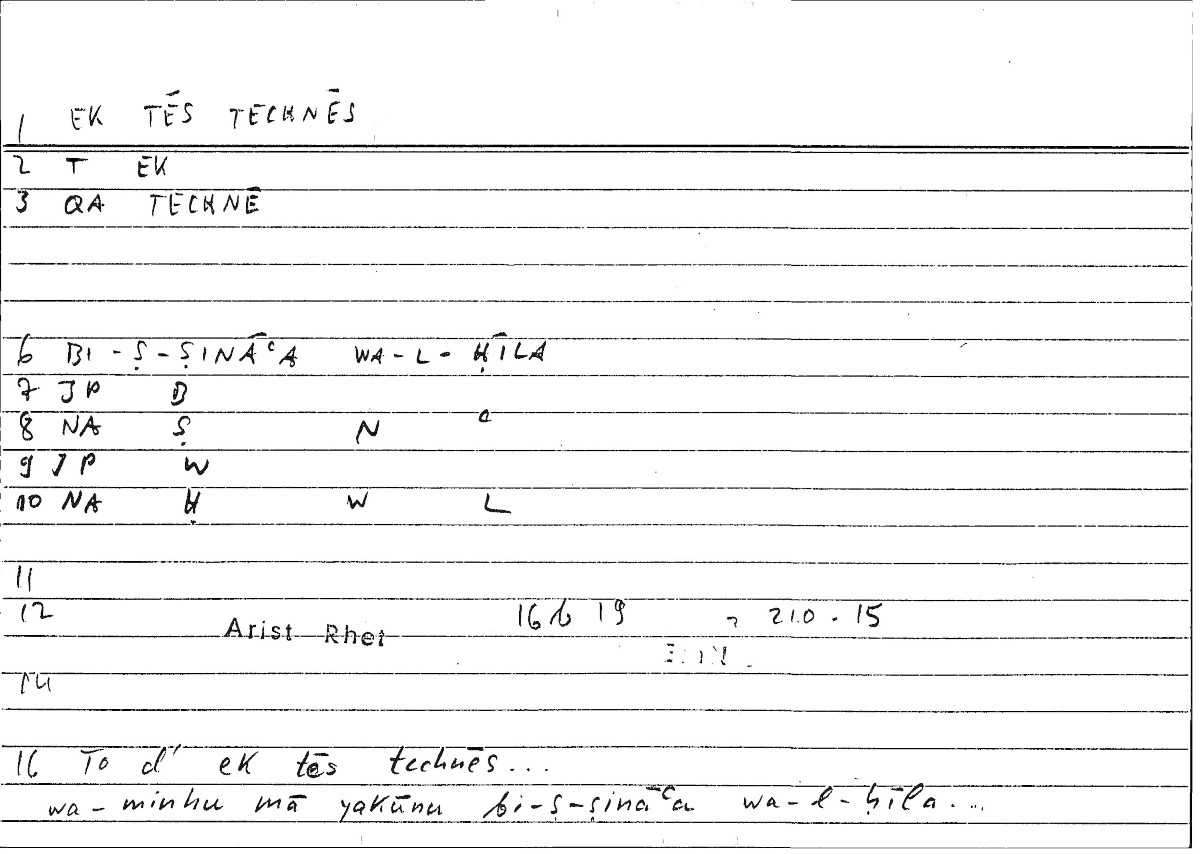 1 EK TĒS TECHNĒS
2 T EK
3 QA TECHNĒ
6 BI-Ṣ-ṢINĀʿA WA-L-ḤĪLA
7 JP B
8 NA Ṣ N ʿ
9 JP W
10 NA Ḥ W L
11
12 Arist Rhet 16b 19 = 210.15
14
16 To d' ek tēs technēs...
wa-minhu mā yakūnu bi-ṣ-ṣināʿa wa-l-ḥīla...